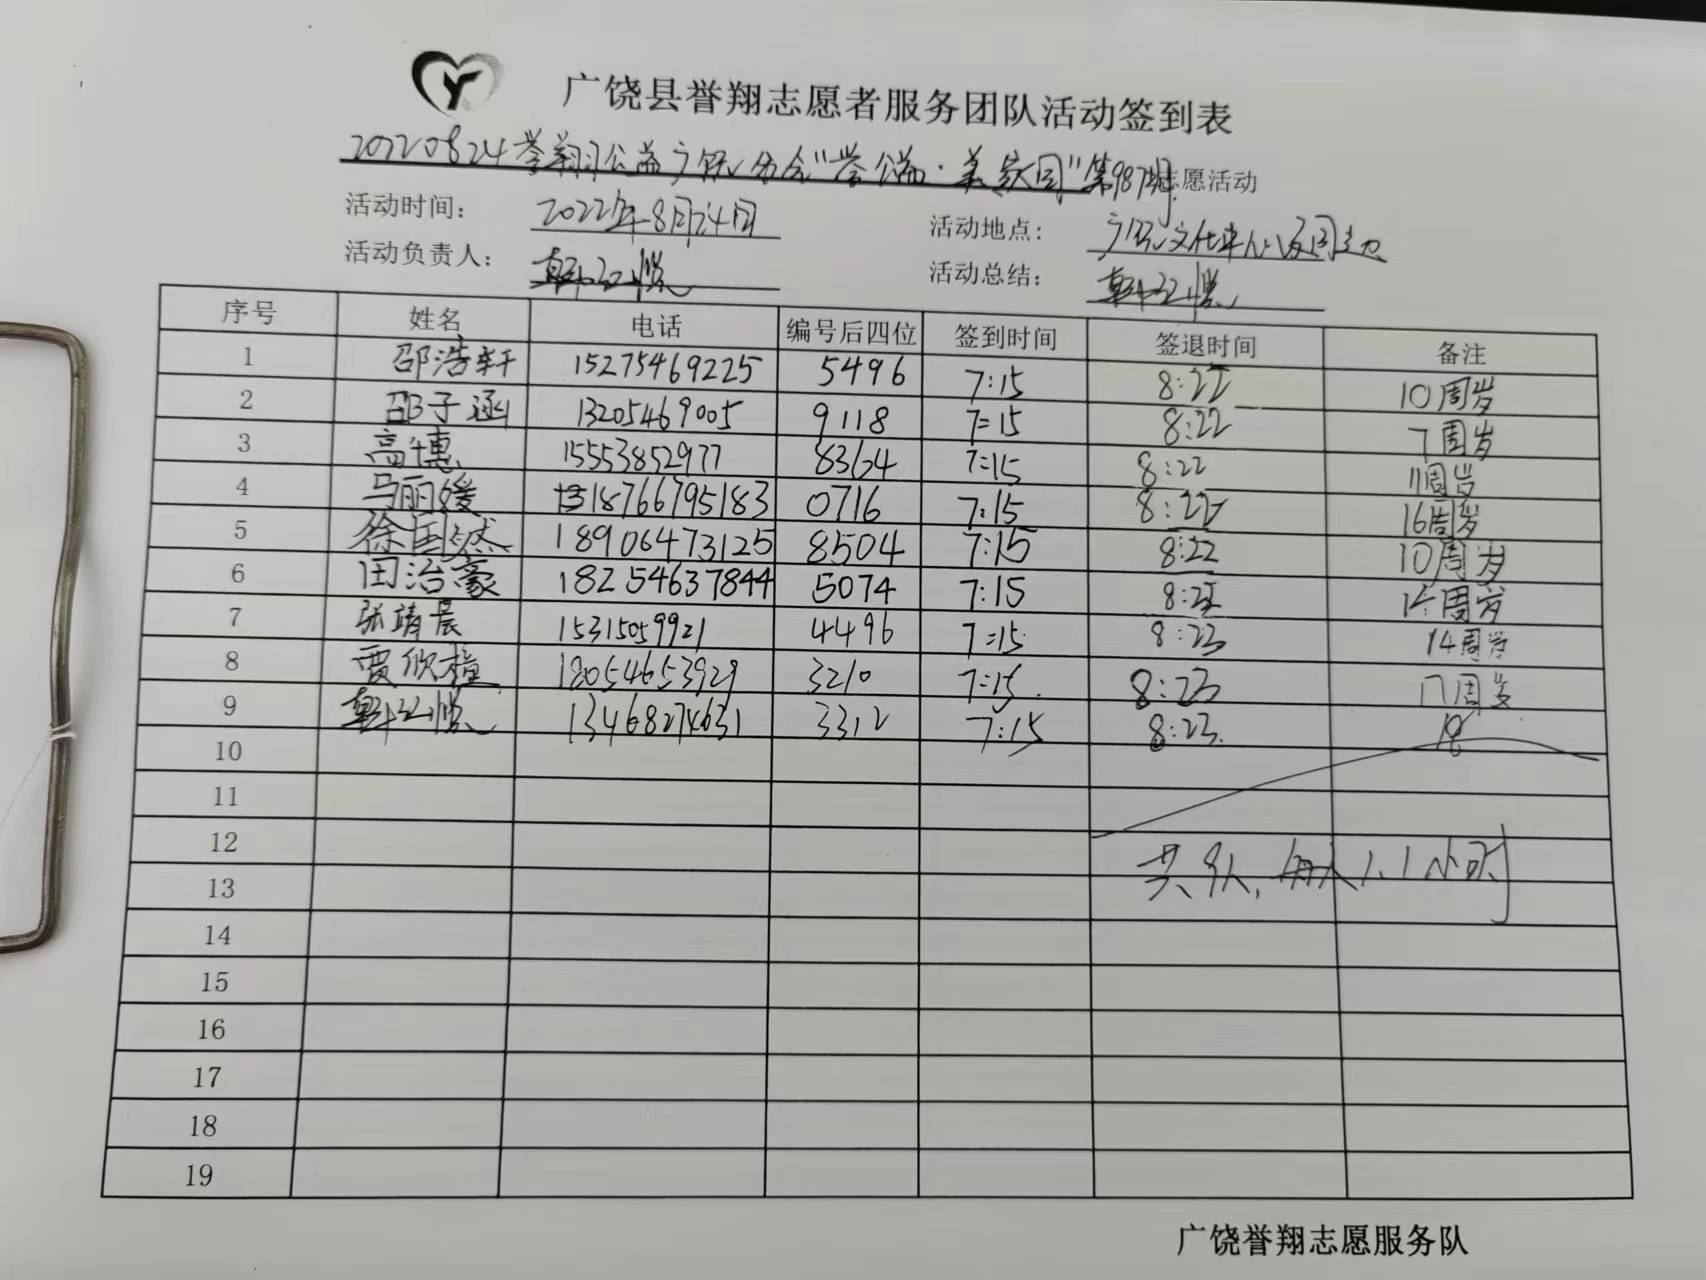 广饶县誉翔志愿者服务团队活动签到表
20220824誉翔公益广饶分会"誉公益·美家园"第987期志愿活动
活动时间: 2022年8月24日 活动地点: 广饶文化中心及周边
活动负责人: 韩江悦 活动总结: 韩江悦
序号 姓名 电话 编号后四位 签到时间 签退时间 备注
1 邵浩轩 15275469225 5496 7:15 8:22 10周岁
2 邵子涵 13205469005 9118 7:15 8:22 7周岁
3 高惠 15553852977 8364 7:15 8:22 11周岁
4 马丽媛 18766795183 0716 7:15 8:22 16周岁
5 徐国然 18906473125 8504 7:15 8:22 10周岁
6 田治豪 18254637844 5074 7:15 8:22 周岁
7 张靖晨 15315059921 4496 7:15 8:23 14周岁
8 贾欣橦 18054653929 3210 7:15 8:23 17周岁
9 韩江悦 13468274631 3312 7:15 8:23 18
10
11
12
共9人,每人1.1小时
13
14
15
16
17
18
19
广饶誉翔志愿服务队